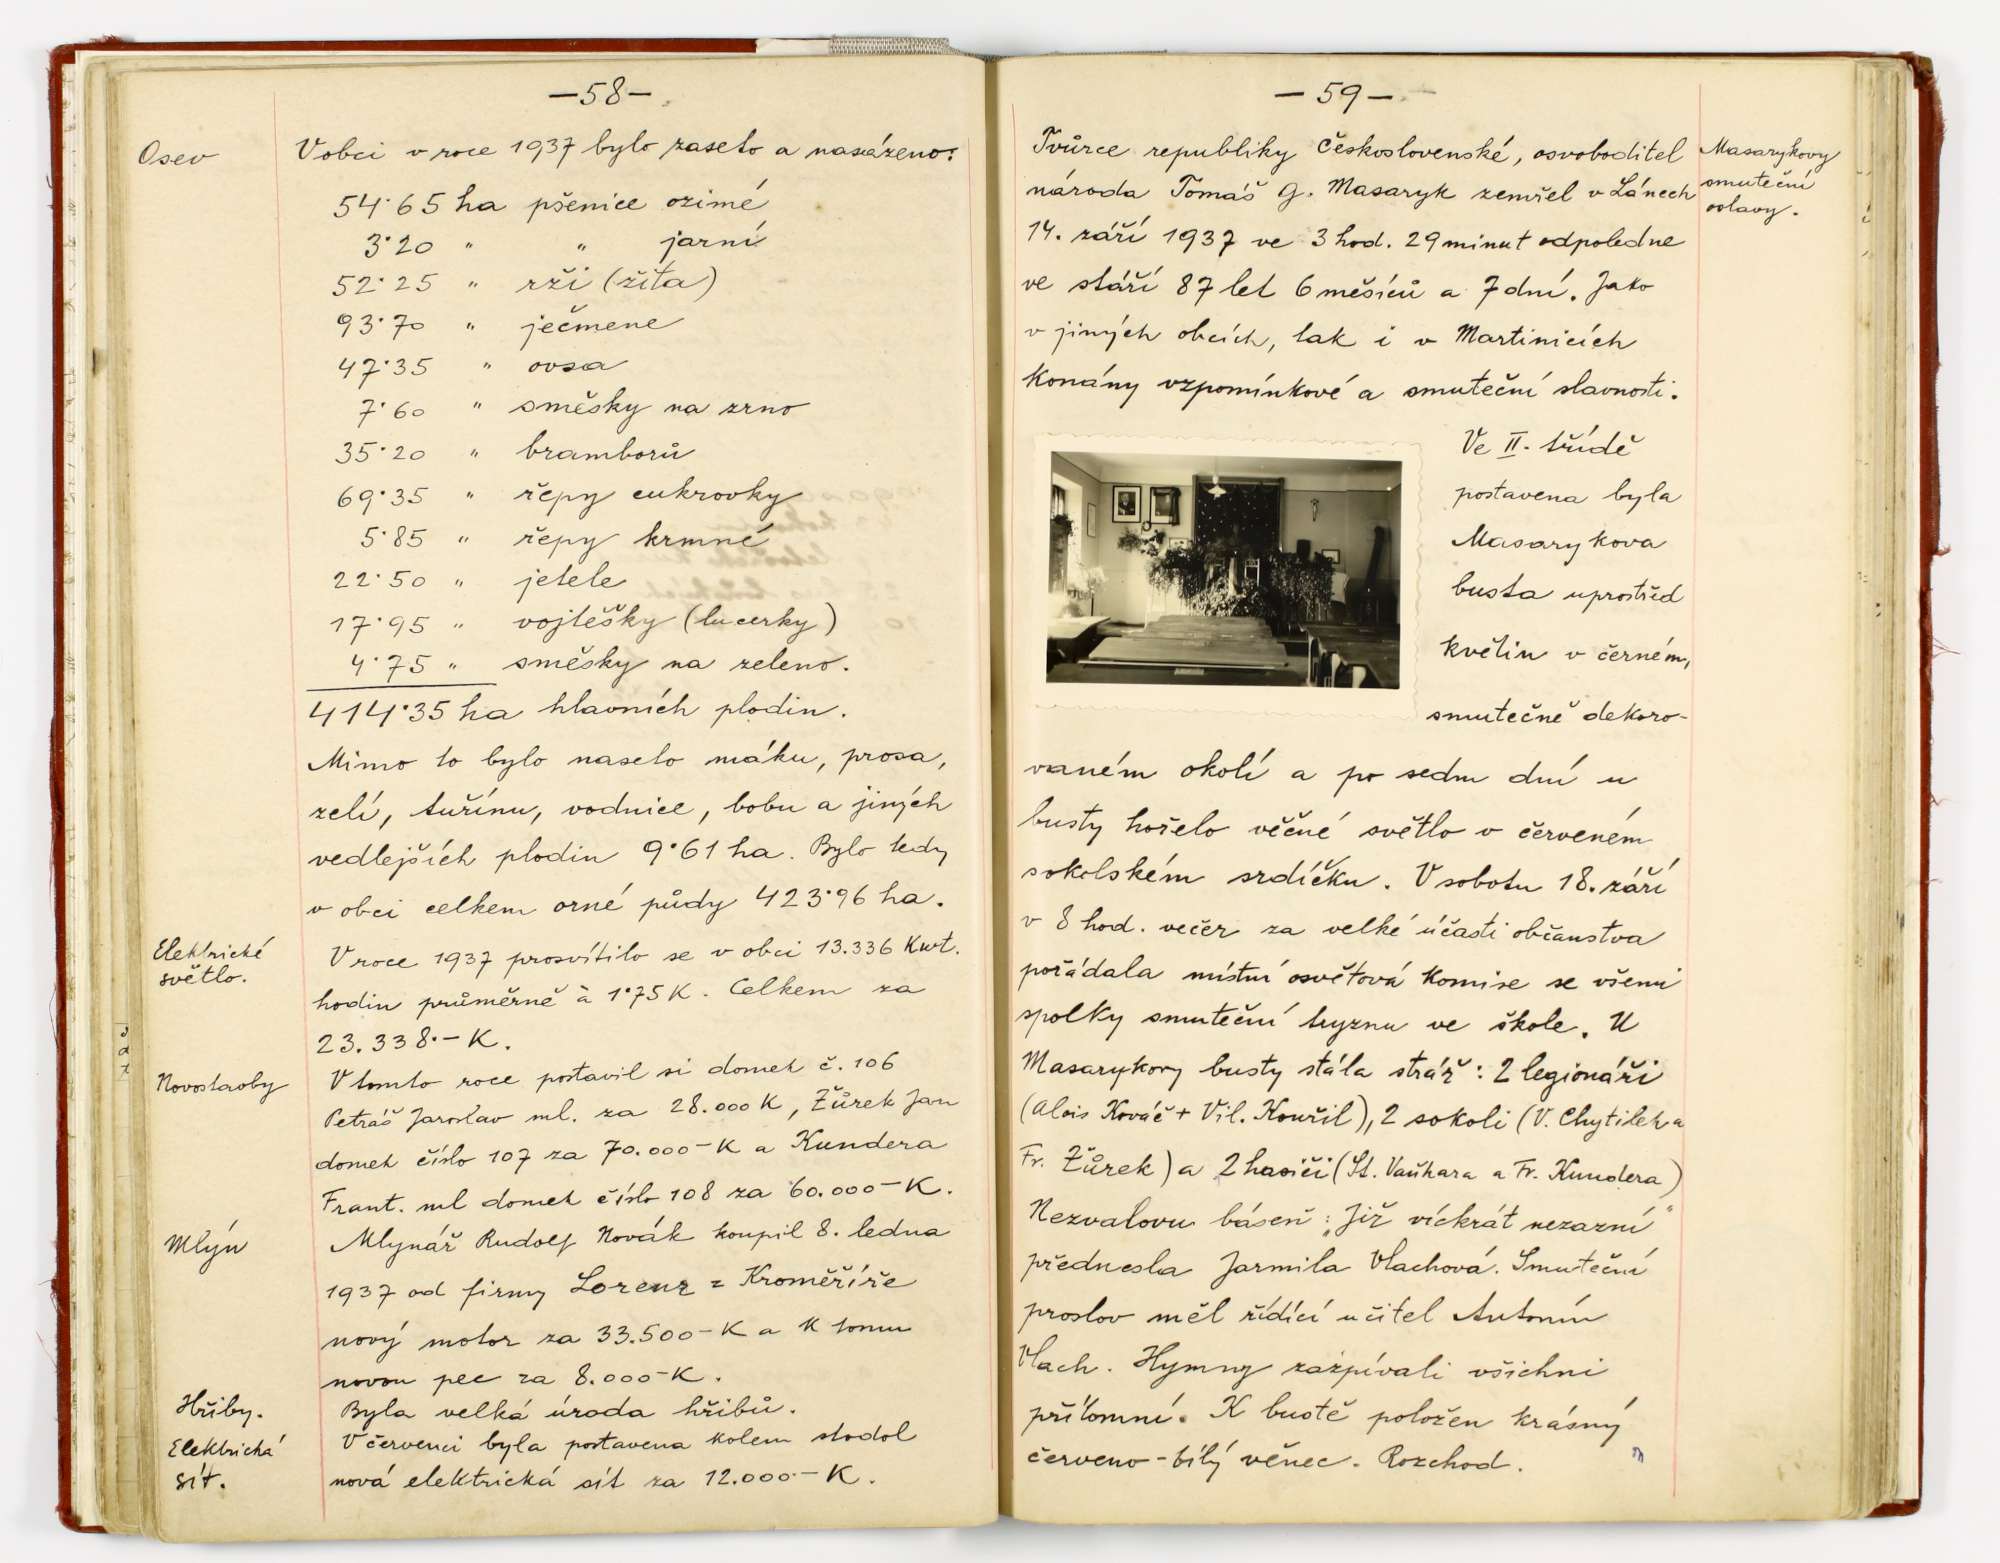 —58—
Osev
V obci v roce 1937 bylo zaseto a nasázeno:
54·65 ha pšenice ozimé
3·20 " " jarní
52·25 " rži (žita)
93·70 " ječmene
47·35 " ovsa
7·60 " směsky na zrno
35·20 " bramborů
69·35 " řepy cukrovky
5·85 " řepy krmné
22·50 " jetele
17·95 " vojtěšky (lucerky)
4·75 " směsky na zeleno.
414·35 ha hlavních plodin.
Mimo to bylo naseto máku, prosa,
zelí, tuřínu, vodnice, bobu a jiných
vedlejších plodin 9·61 ha. Bylo tedy
v obci celkem orné půdy 423·96 ha.
Elektrické
světlo.
V roce 1937 prosvítilo se v obci 13.336 Kwt.
hodin průměrně à 1·75 K. Celkem za
23.338.– K.
Novostavby
V tomto roce postavil si domek č. 106
Petráš Jaroslav ml. za 28.000 K, Žůrek Jan
domek číslo 107 za 70.000– K a Kundera
Frant. ml domek číslo 108 za 60.000– K.
Mlýn
Mlynář Rudolf Novák koupil 8. ledna
1937 od firmy Lorenz z Kroměříže
nový motor za 33.500– K a k tomu
novou pec za 8.000– K.
Hřiby.
Byla velká úroda hřibů.
Elektrická
síť.
V červenci byla postavena kolem stodol
nová elektrická síť za 12.000.– K.
—59—
Masarykovy
smuteční
oslavy.
Tvůrce republiky Československé, osvoboditel
národa Tomáš G. Masaryk zemřel v Lánech
14. září 1937 ve 3 hod. 29 minut odpoledne
ve stáří 87 let 6 měsíců a 7 dní. Jako
v jiných obcích, tak i v Martinicích
konány vzpomínkové a smuteční slavnosti.
Ve II. třídě
postavena byla
Masarykova
busta uprostřed
květin v černém,
smutečně dekoro-
vaném okolí a po sedm dní u
busty hořelo věčné světlo v červeném
sokolském srdíčku. V sobotu 18. září
v 8 hod. večer za velké účasti občanstva
pořádala místní osvětová komise se všemi
spolky smuteční tryznu ve škole. U
Masarykovy busty stála stráž: 2 legionáři
(Alois Kováč + Vil. Kouřil), 2 sokoli (V. Chytilek a
Fr. Žůrek) a 2 hasiči (St. Vaňhara a Fr. Kundera)
Nezvalovu báseň: „Již víckrát nezazní"
přednesla Jarmila Vlachová. Smuteční
proslov měl řídící učitel Antonín
Vlach. Hymny zazpívali všichni
přítomní. K bustě položen krásný
červeno-bílý věnec. Rozchod.